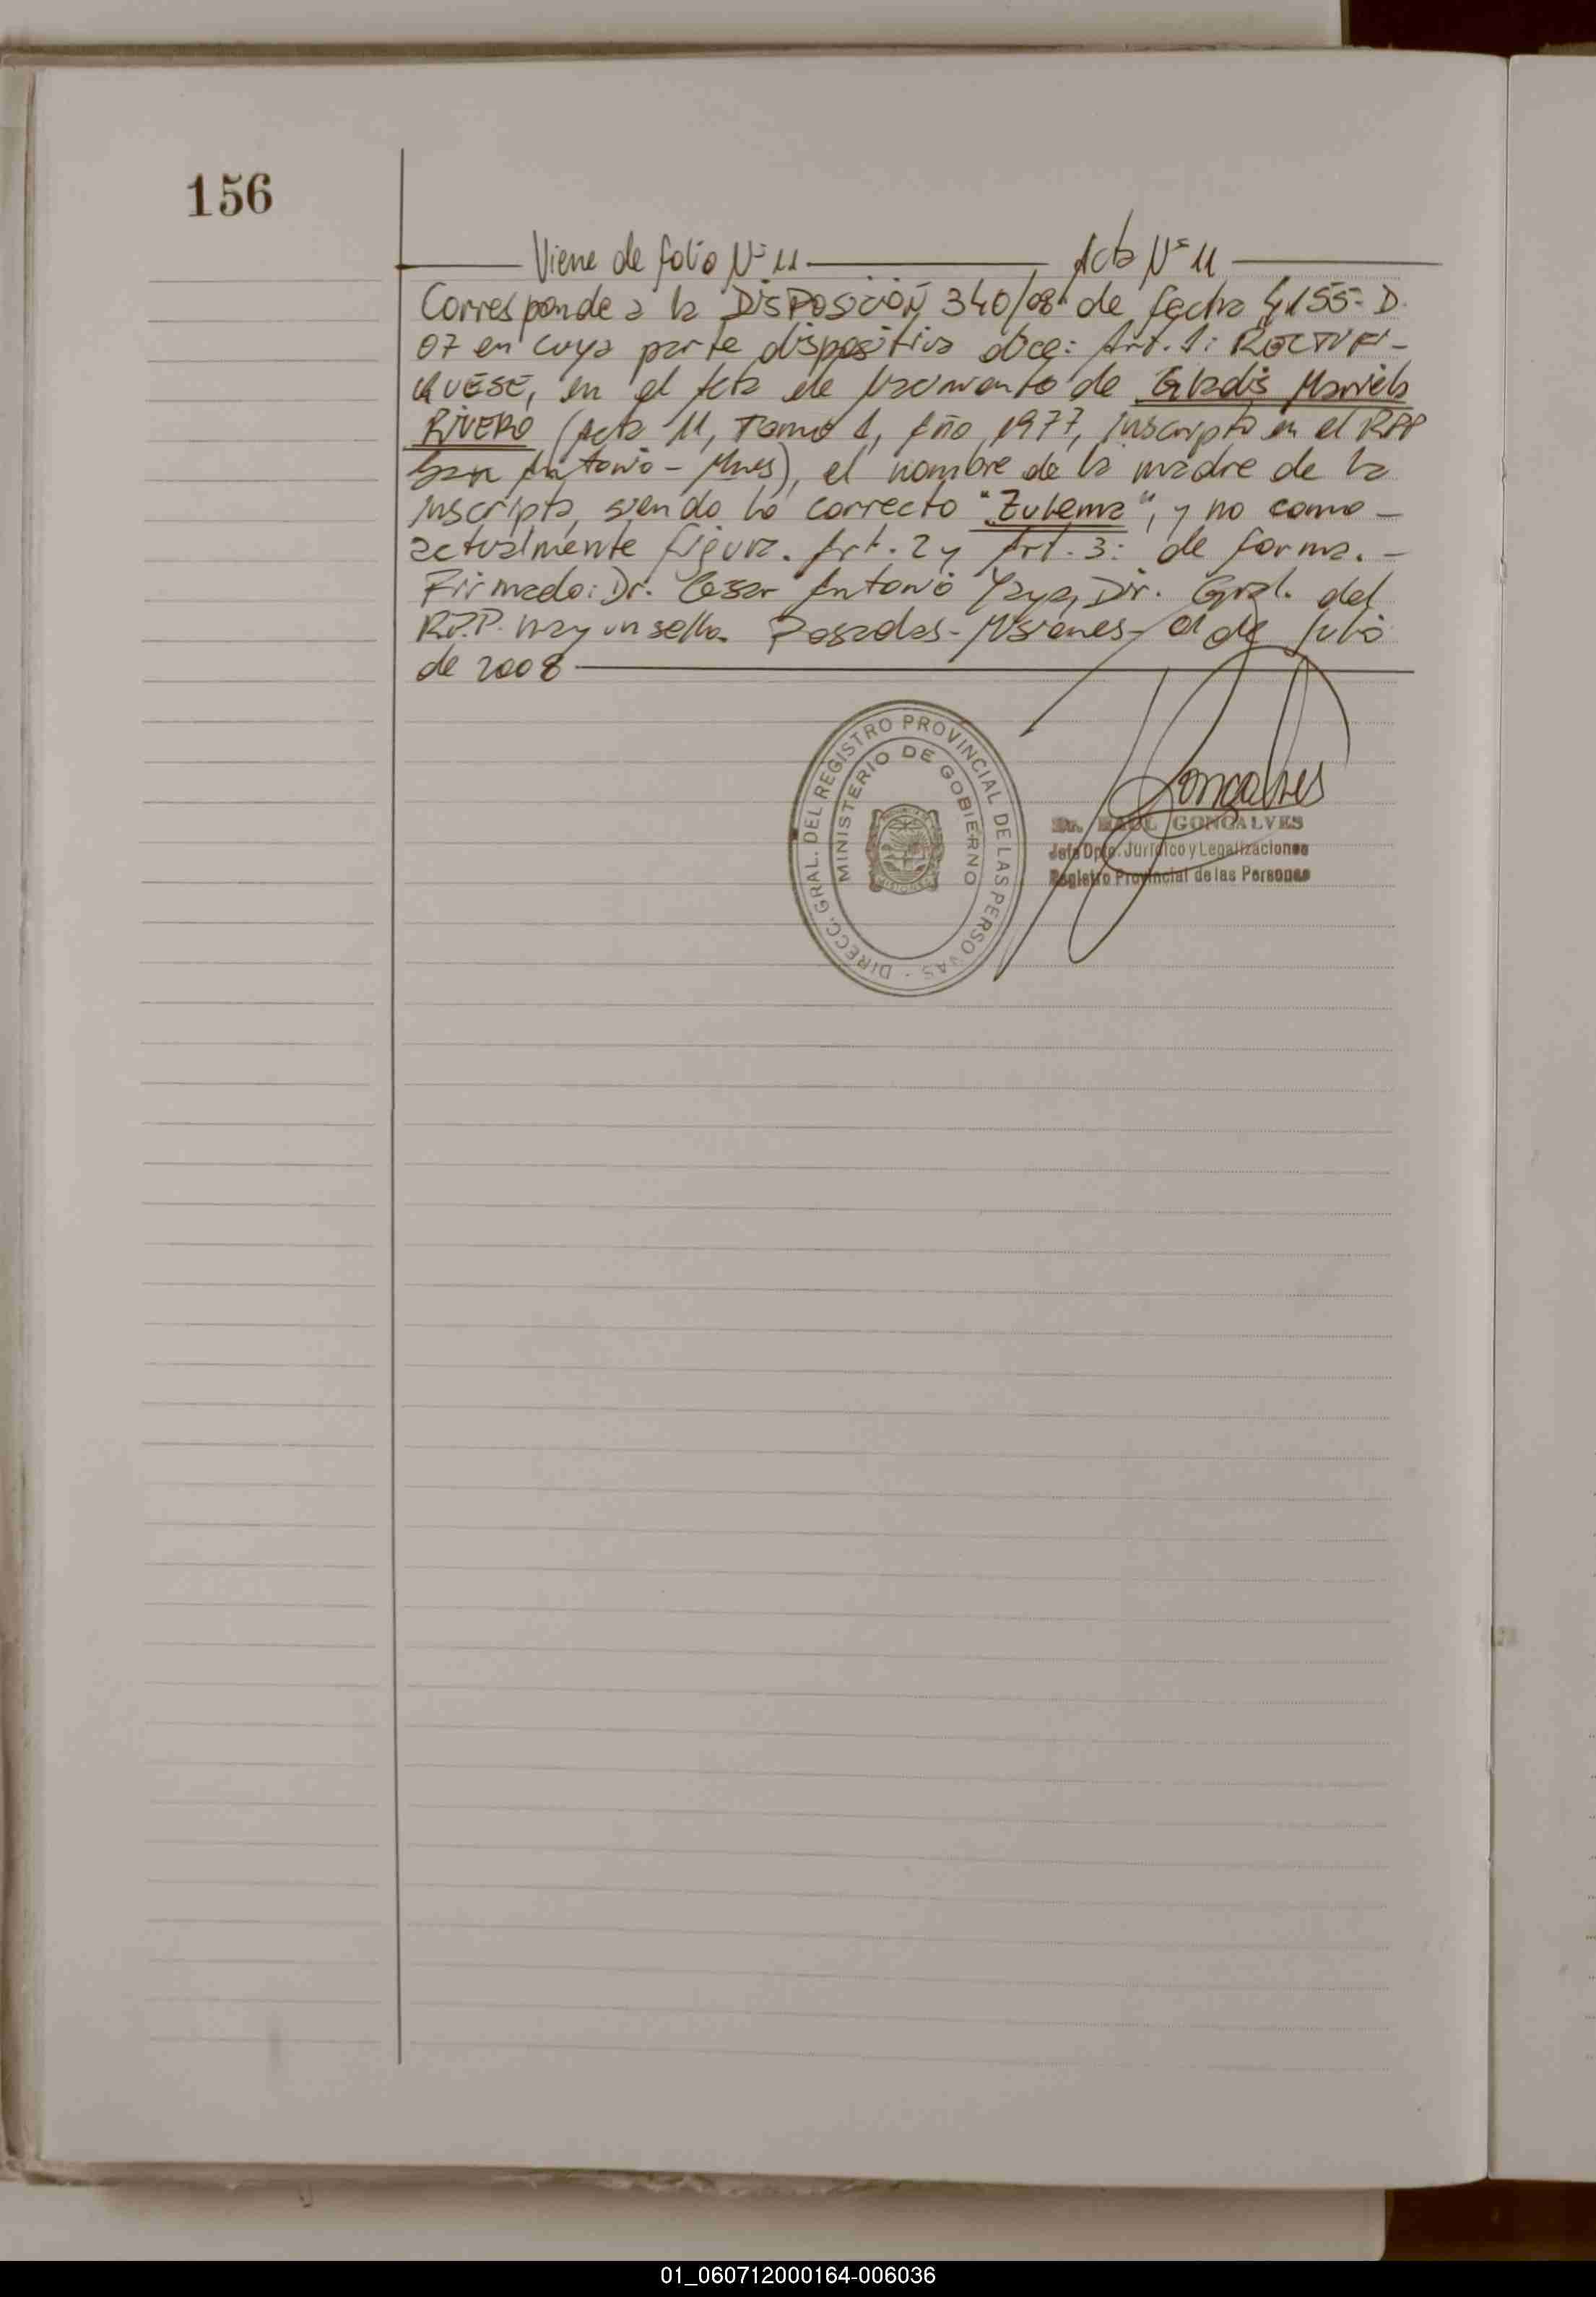 156
Viene de folio Nº 11 Acta Nº 11
Corresponde a la DISPOSICIÓN 340/08 de fecha 4155- D.
07 en cuya parte dispositiva dice: Art. 1: RECTIFI-
QUESE, en el Acta de Nacimiento de Gladis Mariela
RIVERO (Acta 11, Tomo 1, Año 1977, inscripta en el RPP
San Antonio - Mnes), el nombre de la madre de la
inscripta, siendo lo correcto "Zulema", y no como -
actualmente figura. Art. 2 y Art. 3: de forma. -
Firmado: Dr. Cesar Antonio Yaya, Dir. Gral. del
R.P.P. hay un sello. Posadas - Misiones - de Julio
de 2008
DIRECC. GRAL. DEL REGISTRO PROVINCIAL DE LAS PERSONAS -
MINISTERIO DE GOBIERNO
MISIONES
Gonçalves
Dr. RAUL GONCALVES
Jefe Dpto. Jurídico y Legalizaciones
Registro Provincial de las Personas
01_060712000164-006036